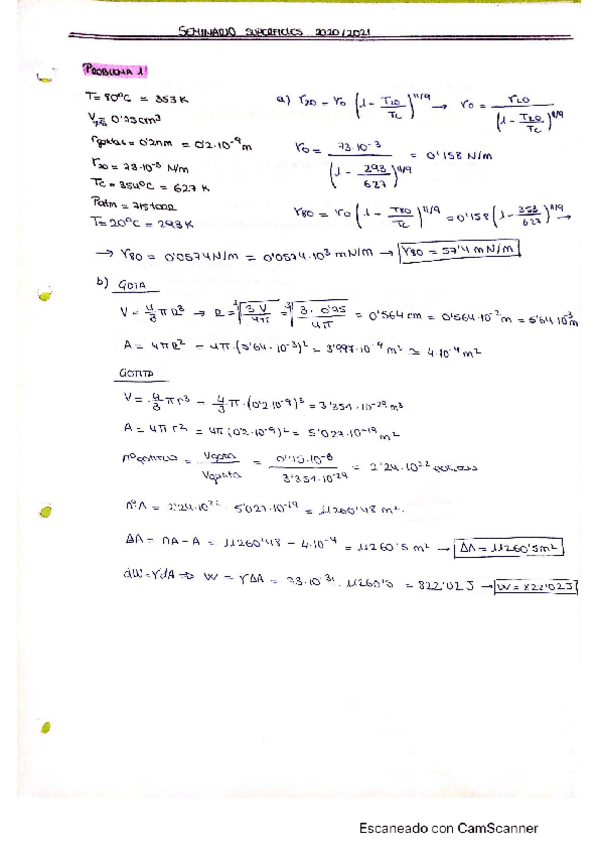 SEMINARIO SUPERFICIES 2020/2021
PROBLEMA 1
T = 80ºC = 353 K
0'75 cm³
r gotitas = 0'2 nm = 0'2·10⁻⁹ m
γ20 = 73·10⁻³ N/m
Tc = 354ºC = 627 K
T = 20ºC = 293 K
a) γ20 = γ0 (1 - T20/Tc)^11/9 → γ0 = γ20/(1 - T20/Tc)^11/9
γ0 = 73·10⁻³/(1 - 293/627)^11/9 = 0'158 N/m
γ80 = γ0 (1 - T80/Tc)^11/9 = 0'158 (1 - 353/627)^11/9 →
→ γ80 = 0'0574 N/m = 0'0574·10³ mN/m → γ80 = 57'4 mN/m
b) GOTA
V = 4/3 π R³ → R = ³√(3V/4π) = ³√(3·0'75/4π) = 0'564 cm = 0'564·10⁻² m = 5'64·10⁻³ m
A = 4πR² = 4π·(5'64·10⁻³)² = 3'997·10⁻⁴ m² ≃ 4·10⁻⁴ m²
GOTITA
V = 4/3 π r³ = 4/3·π·(0'2·10⁻⁹)³ = 3'351·10⁻²⁹ m³
A = 4πr² = 4π(0'2·10⁻⁹)² = 5'027·10⁻¹⁹ m²
nº gotitas = Vgota/Vgotita = 0'75·10⁻⁶/3'351·10⁻²⁹ = 2'24·10²² gotitas
nº A = 2'24·10²² · 5'027·10⁻¹⁹ = 11260'48 m²
ΔA = nA - A = 11260'48 - 4·10⁻⁴ = 11260'5 m² → ΔA = 11260'5 m²
dW = γdA ⇒ W = γΔA = 73·10⁻³ · 11260'5 = 822'02 J → W = 822'02 J
Escaneado con CamScanner